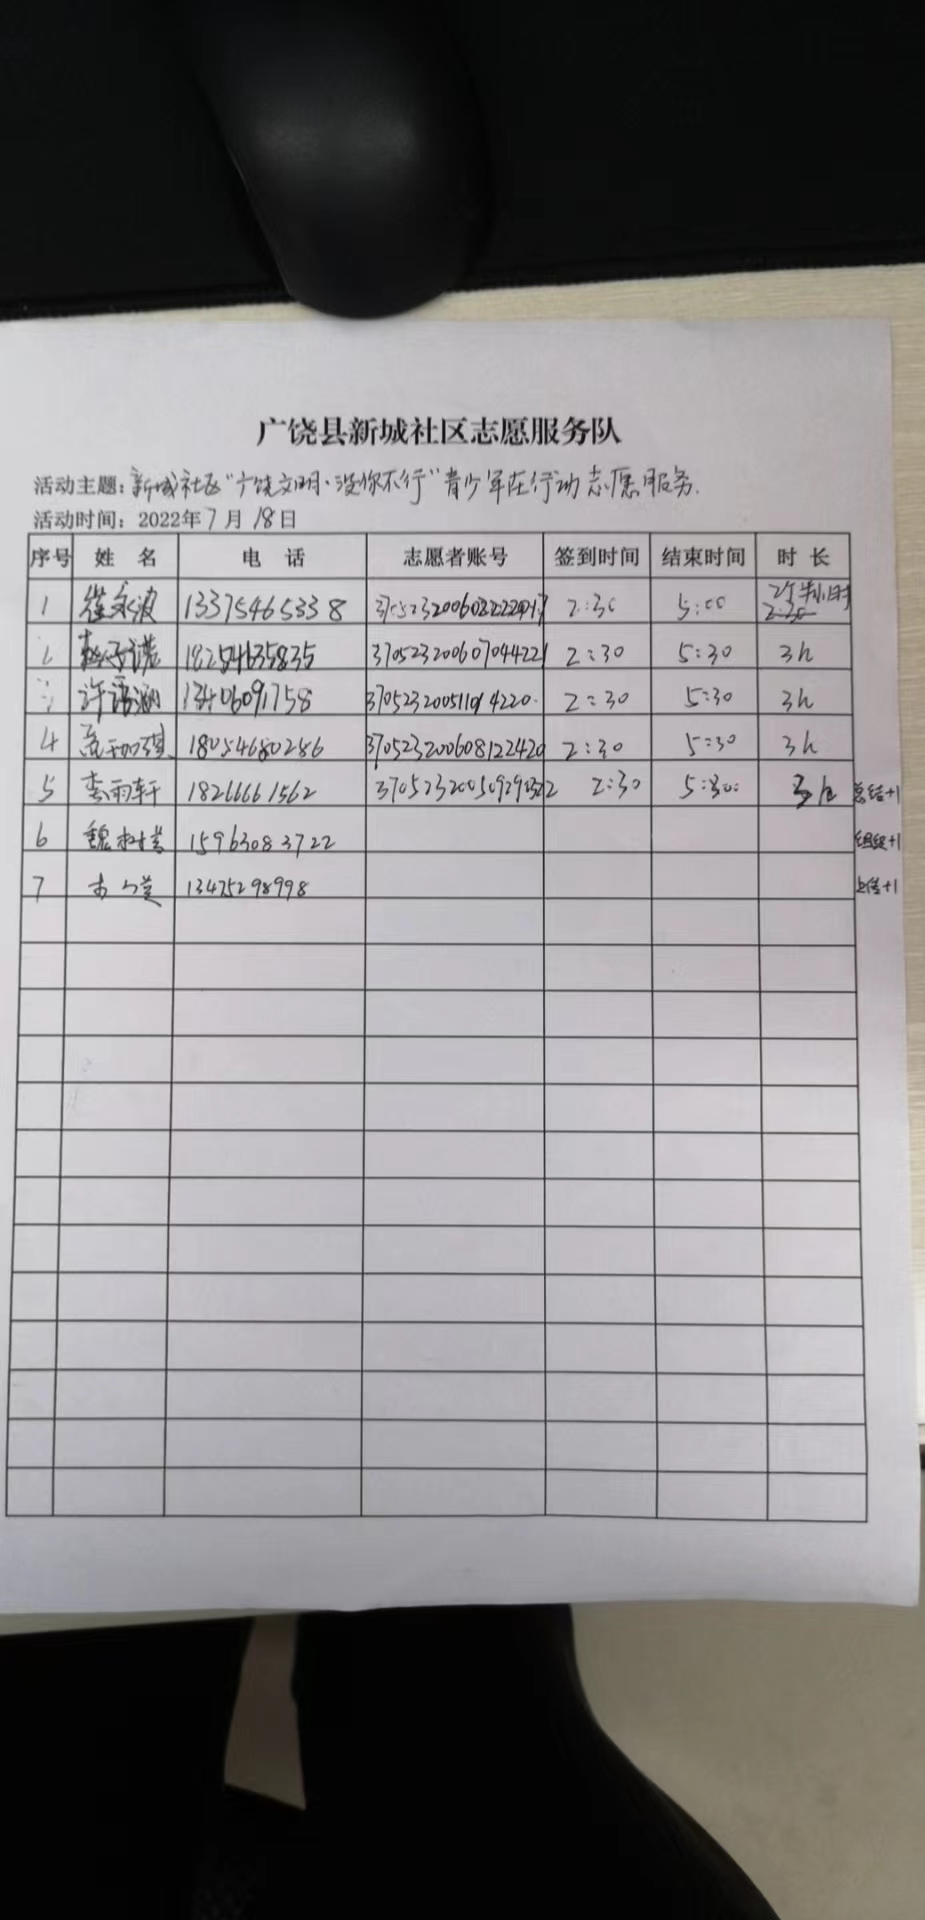 广饶县新城社区志愿服务队
活动主题：新城社区“广饶文明·没你不行”青少年在行动志愿服务.
活动时间：2022年7月18日
序号 姓 名 电 话 志愿者账号 签到时间 结束时间 时 长
1 崔文波 13375465338 2:30 5:00 2个半小时
2 18254635835 2:30 5:30 3h
3 许语涵 13406091758 2:30 5:30 3h
4 18054680286 370523200608122420 2:30 5:30 3h
5 李雨轩 18266661562 2:30 5:30 3h 总结+1
6 魏树兰 15963083722 组织+1
7 13475298998 上传+1